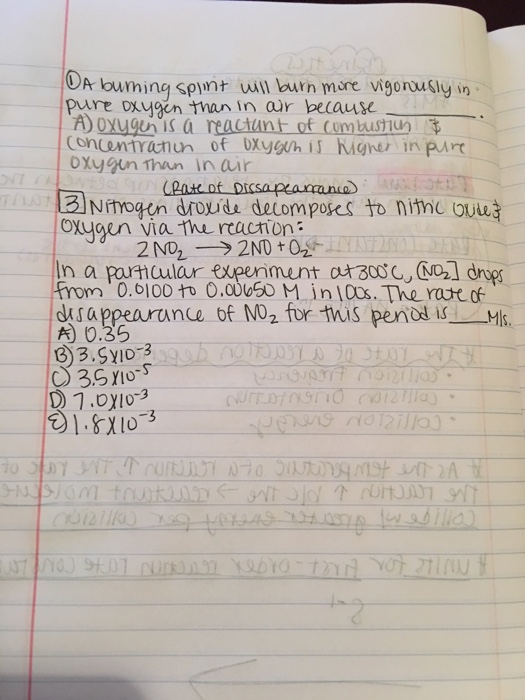 ① A burning splint will burn more vigorously in
pure oxygen than in air because ______.
A) oxygen is a reactant of combustion &
concentration of oxygen is higher in pure
oxygen than in air
(Rate of Dissapearance)
3 Nitrogen dioxide decomposes to nitric oxide &
oxygen via the reaction:
2 NO₂ → 2NO + O₂
In a particular experiment at 300°C, [NO₂] drops
from 0.0100 to 0.00650 M in 100s. The rate of
disappearance of NO₂ for this period is ___ M/s.
A) 0.35
B) 3.5x10⁻³
C) 3.5x10⁻⁵
D) 7.0x10⁻³
E) 1.8x10⁻³